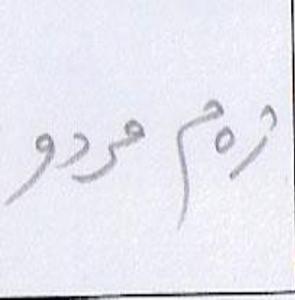 زەم مردو